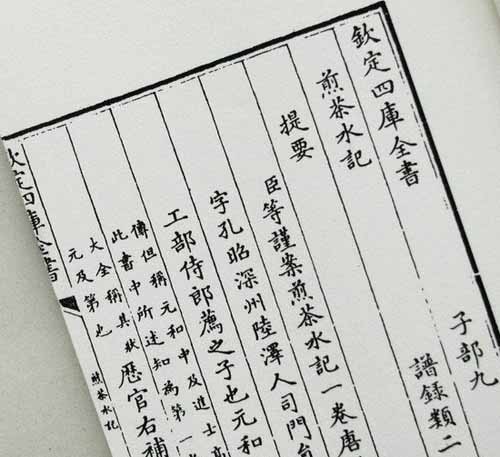 欽定四庫全書 子部九
煎茶水記 譜錄類二
提要
臣等謹案煎茶水記一卷唐
字孔昭深州陸澤人司門
工部侍郎薦之子也元和
傳但稱元和中及進士
此書中所述知為第一
大全稱其狀
元及第也
歷官右補
欽定四庫全書
煎茶水記